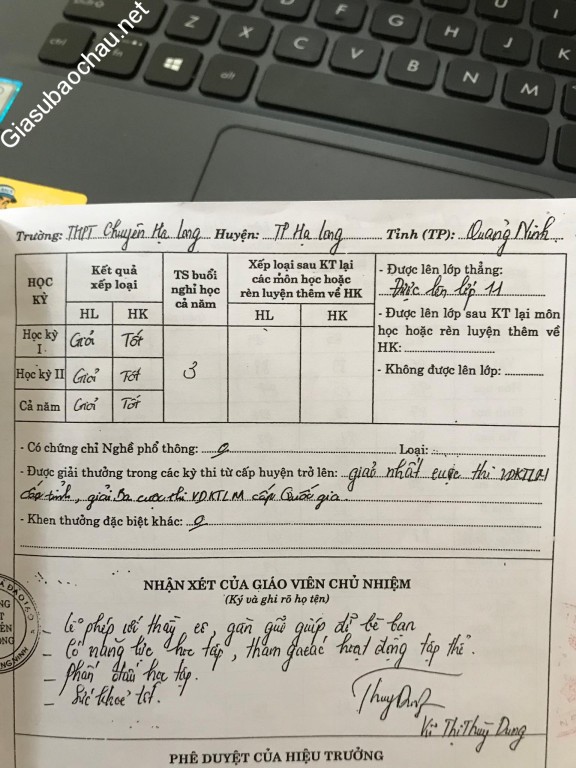 Giasubaochau.net
ctrl
alt
Z X C V B N M
F G H J K
Trường: THPT Chuyên Hạ Long Huyện: TP Hạ Long Tỉnh (TP): Quảng Ninh
HỌC KỲ
Kết quả xếp loại
HL HK
TS buổi nghỉ học cả năm
Xếp loại sau KT lại các môn học hoặc rèn luyện thêm về HK
HL HK
Học kỳ I Giỏi Tốt
Học kỳ II Giỏi Tốt 3
Cả năm Giỏi Tốt
- Được lên lớp thẳng:
Được lên lớp 11
- Được lên lớp sau KT lại môn
học hoặc rèn luyện thêm về
HK:
- Không được lên lớp:
- Có chứng chỉ Nghề phổ thông: 0 Loại:
- Được giải thưởng trong các kỳ thi từ cấp huyện trở lên: giải nhất cuộc thi VDKTLM
cấp tỉnh, giải Ba cuộc thi VDKTLM cấp Quốc gia
- Khen thưởng đặc biệt khác: 0
NHẬN XÉT CỦA GIÁO VIÊN CHỦ NHIỆM
(Ký và ghi rõ họ tên)
- Lễ phép với thầy cô, gần gũi giúp đỡ bè bạn
- Có năng lực học tập, tham gia các hoạt động tập thể.
- Phấn đấu học tập.
- Sức khoẻ tốt.
Thuy Dung
Vũ Thị Thùy Dung
PHÊ DUYỆT CỦA HIỆU TRƯỞNG